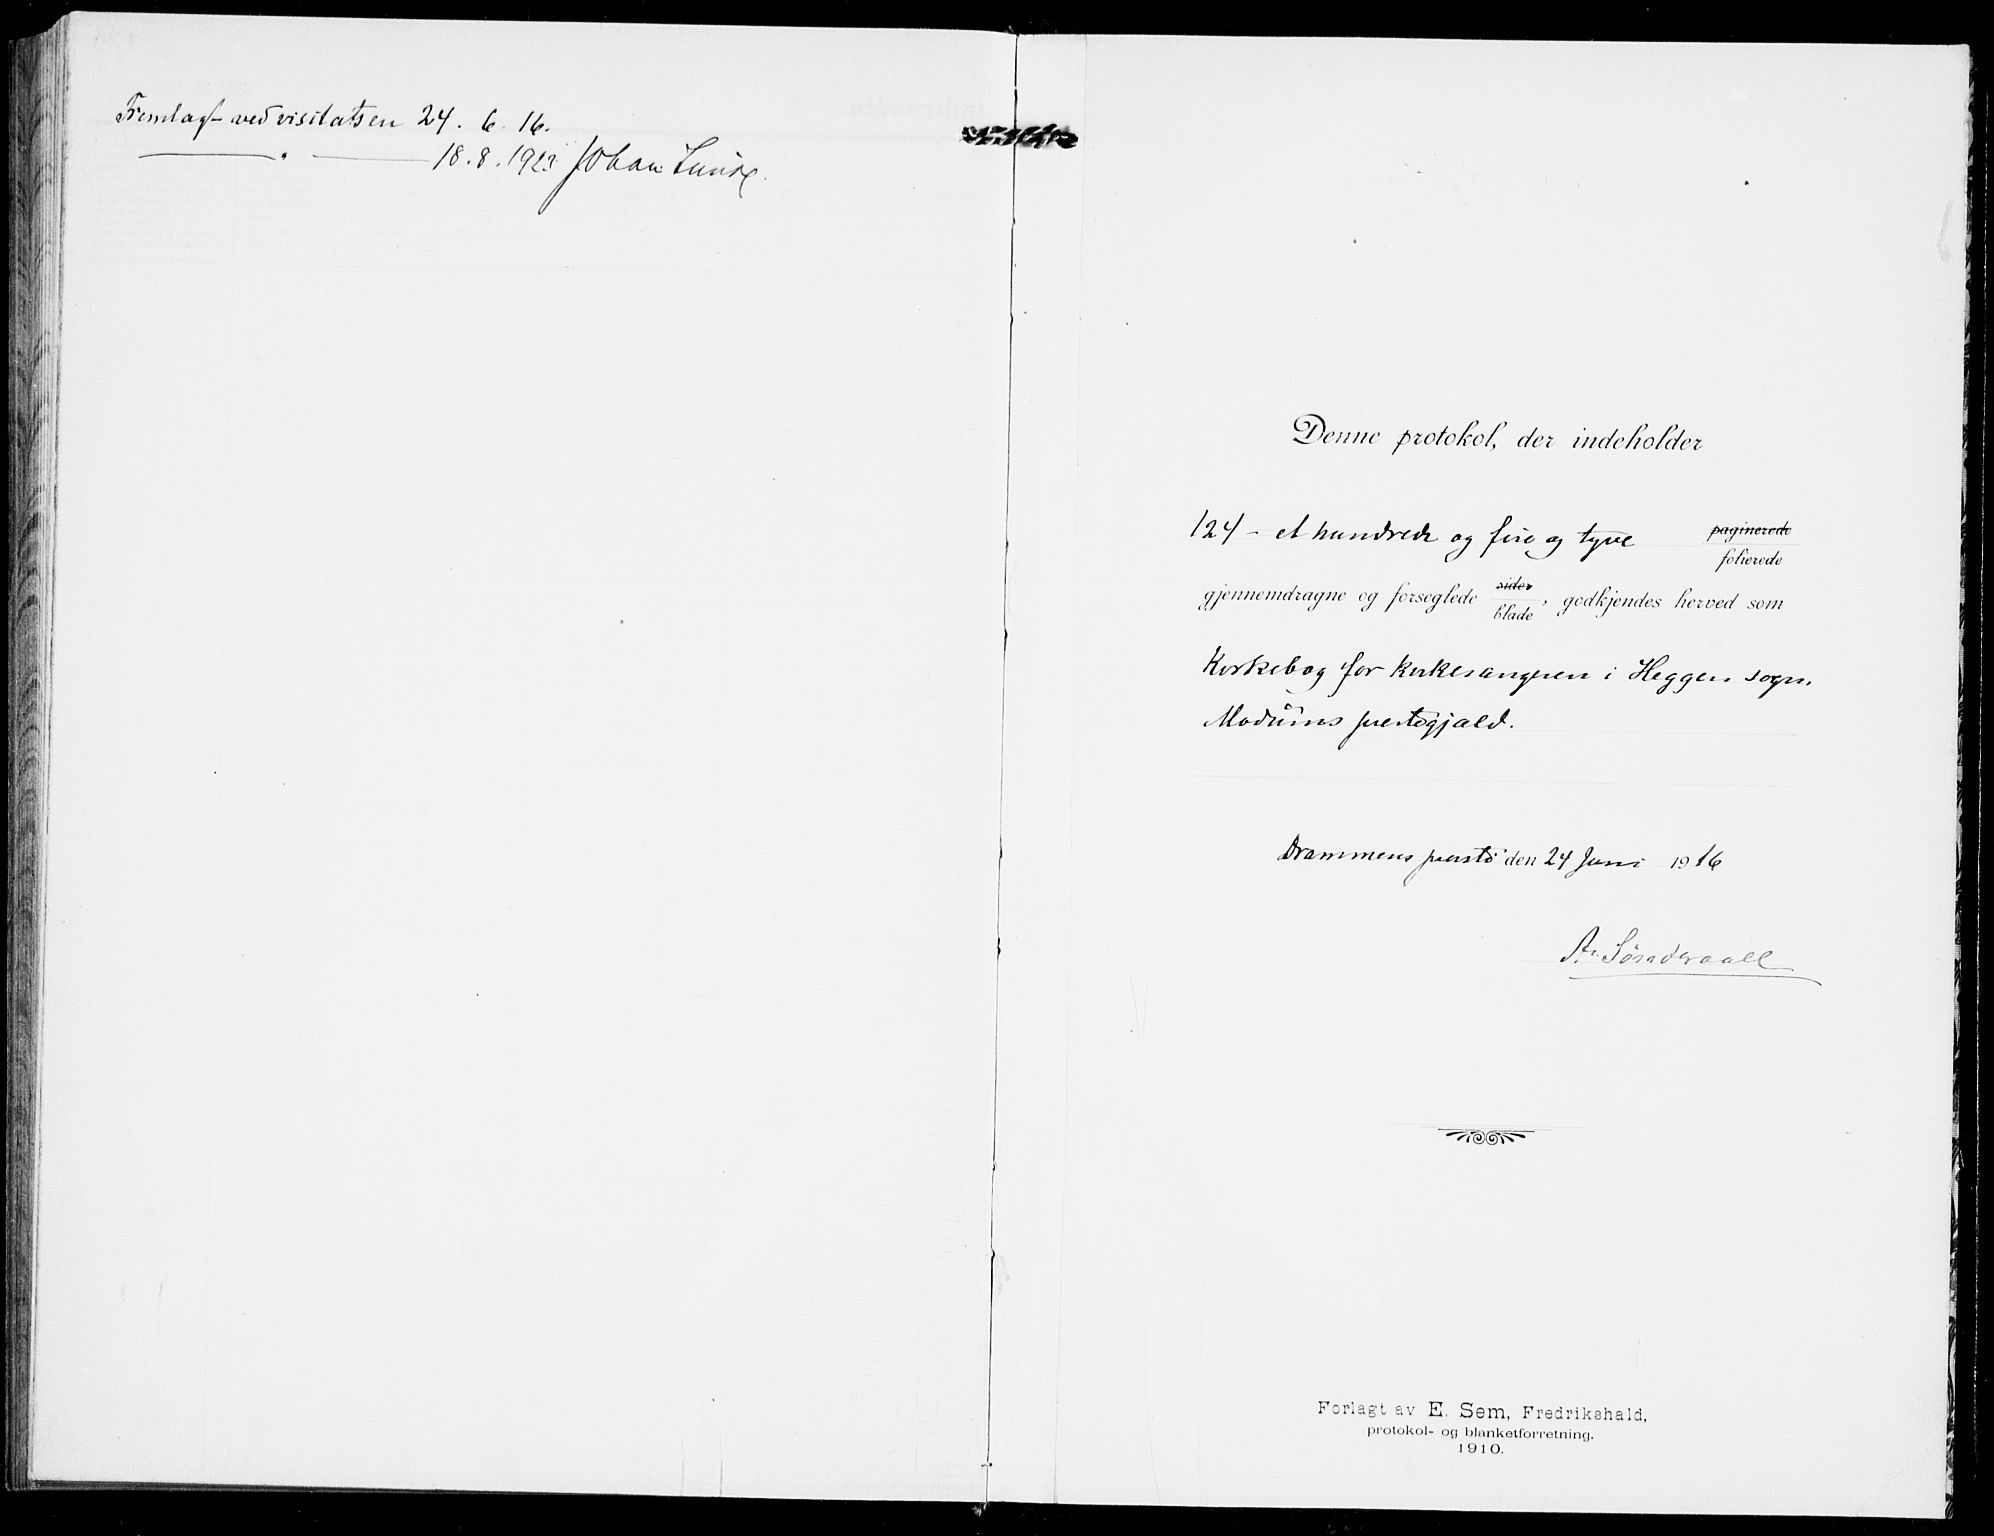 Fremlagt ved visitatsen 24. 6. 16.
— " — 18. 8. 1923 Johan Lunde.
Denne protokol, der indeholder
124 - et hundrede og fire og tyve paginerede
folierede
gjennemdragne og forseglede sider
blade, godkjendes herved som
Kirkebog for kirkesangeren i Heggen sogn.
Modums prestegjeld.
Drammens prosti den 24 Juni 1916
Forlagt av E. Sem, Fredrikshald,
protokol- og blanketforretning.
1910.